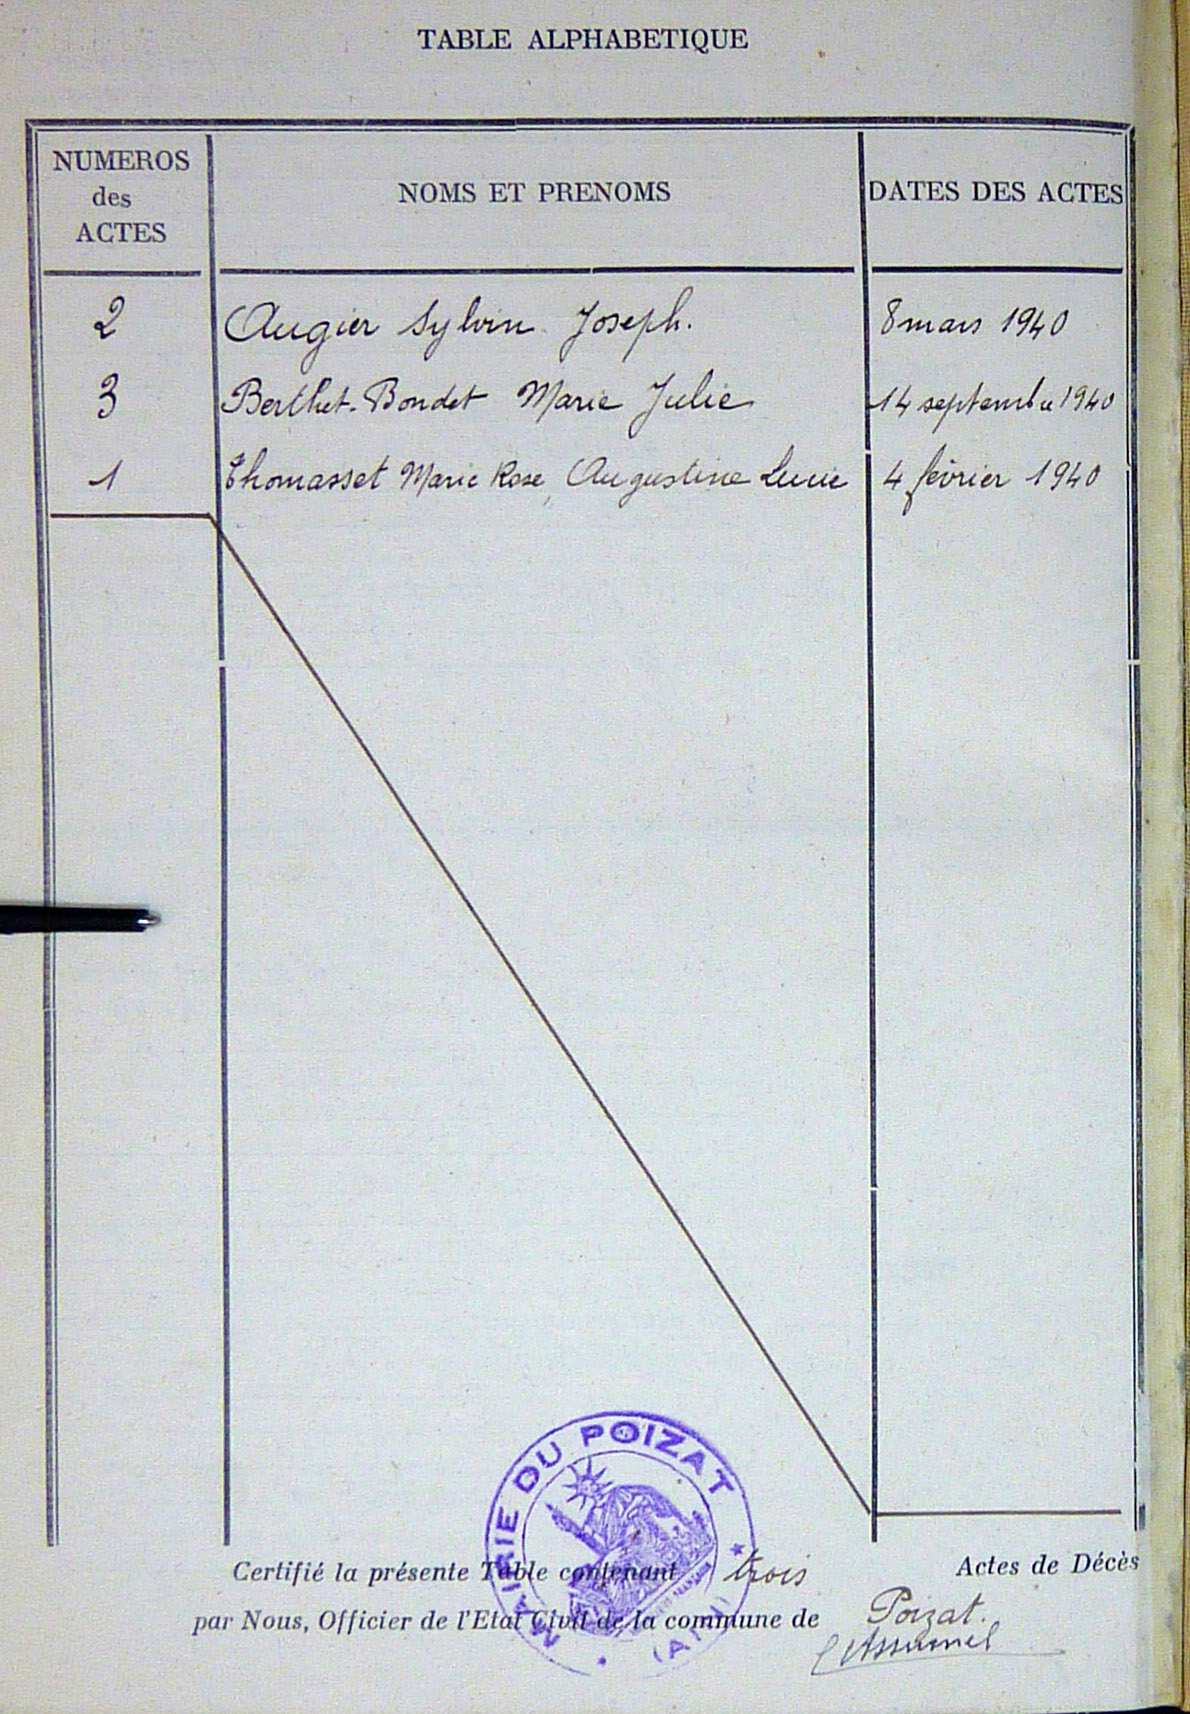 TABLE ALPHABETIQUE
NUMEROS
des
ACTES
NOMS ET PRENOMS
DATES DES ACTES
2 Augier Sylvin Joseph. 8 mars 1940
3 Berthet-Bondet Marie Julie 14 septembre 1940
1 Thomasset Marie Rose Augustine Lucie 4 février 1940
MAIRIE DU POIZAT
(AIN)
Certifié la présente Table contenant trois Actes de Décès
par Nous, Officier de l'Etat Civil de la commune de Poizat.